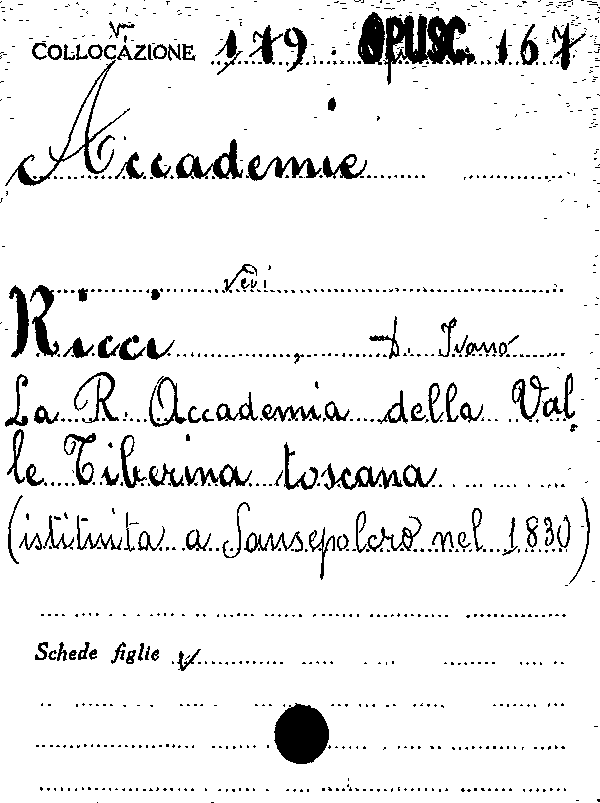 COLLOCAZIONE 179. OPUSC. 167
Accademie
vedi
Ricci, D. Ivano
La R. Accademia della Val
le Tiberina toscana
(istituita a Sansepolcro nel 1830)
Schede figlie